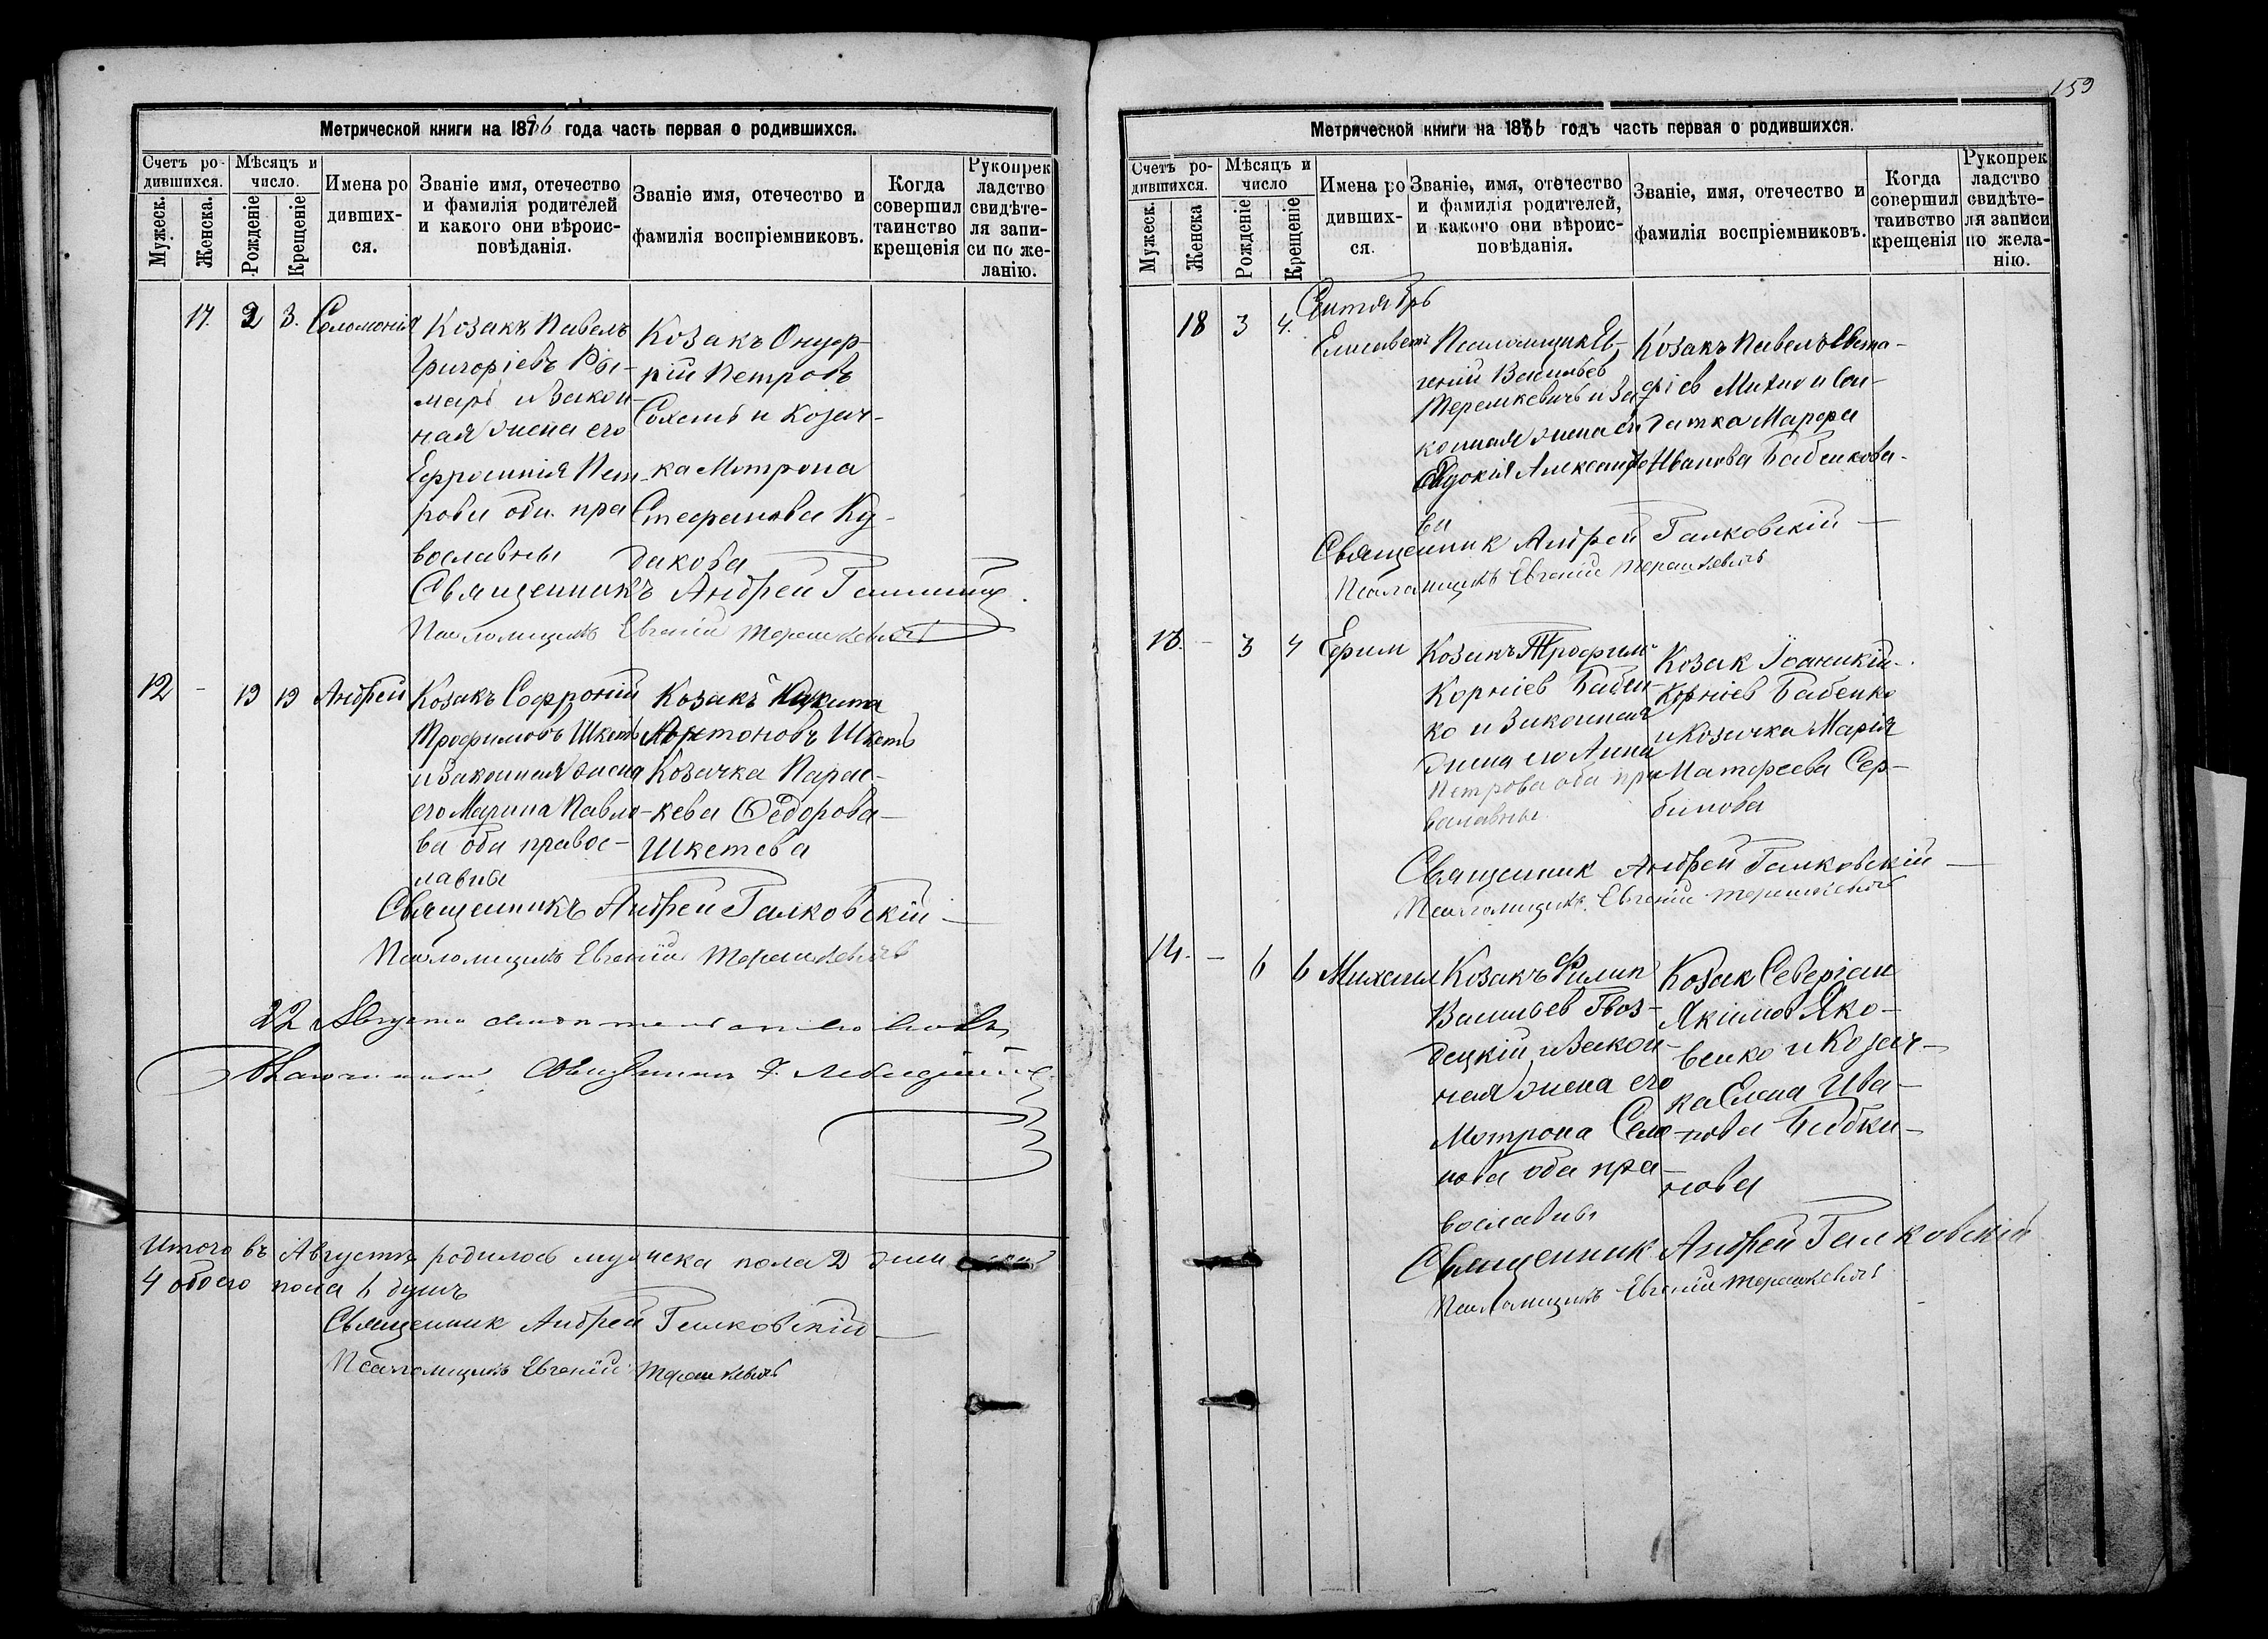 Метрической книги на 1886 года часть первая о родившихся.
Счетъ ро-
дившихся.
Мѣсяцъ и
число.
Мужеск.
Женска.
Рожденіе
Крещеніе
Имена ро
дивших-
ся.
Званіе имя, отечество
и фамилія родителей
и какого они вѣроис-
повѣданія.
Званіе имя, отечество и
фамилія воспріемниковъ.
Когда
совершил
таинство
крещенія
Рукопрек
ладство
свидѣте-
ля запи-
си по же-
ланію.
17. 2 3. Соломонія
Козакъ Павелъ
Григоріевъ Ры-
марь и Закон-
ная жена его
Ефросинія Пет-
рова оба пра
вославны
Козакъ Онуф-
рій Петровъ
и Козач-
ка Мотрона
Стефанова Ку-
дакова
Священникъ Андрей
Псаломщикъ Евгеній Терешкевичъ
12 - 19 19 Андрей
Козакъ Софроній
Трофимовъ Шкеть
и Законная жена
его Марина Павло-
ва оба правос-
лавны
Козакъ Никита
Антоновъ Шкеть
Козачка Парас-
кева Федорова
Шкетева
Священникъ Андрей Галковскій
Псаломщикъ Евгеній Терешкевичъ
22 Августа
Итого въ Августѣ родилось мужеска пола 2 жен
4 обоего пола 6 душъ
Священник Андрей Галковскій
Псаломщикъ Евгеній Терешкевичъ
159
Метрической книги на 1886 годъ часть первая о родившихся.
Счетъ ро-
дившихся.
Мѣсяцъ и
число
Мужеск.
Женска
Рожденіе
Крещеніе
Имена ро
дивших-
ся.
Званіе, имя, отечество
и фамилія родителей,
и какого они вѣроис-
повѣданія.
Званіе, имя, отечество и
фамилія воспріемниковъ.
Когда
совершил
таинство
крещенія
Рукопрек
ладство
свидѣте-
ля записи
по жела-
нію.
Сентябрь
18 3 4. Елисавета
Псаломщик Ев-
геній Васильев
Терешкевичъ и За
конная жена его
Евдокія Александро
ва
Козакъ Павелъ Евста-
фіев Михно и Сол-
датка Марфа
Иванова Бабенкова
Священник Андрей Галковскій
Псаломщикъ Евгеній Терешкевичъ
13. - 3 4 Ефим
Козакъ Трофим
Корніев Бабен-
ко и Законная
жена его Анна
Петрова оба пра
вославны
Козак Іоаникій
Корніев Бабенко
и Козачка Марія
Матфеева Сер-
бинова
Священник Андрей Галковскій
Псаломщикъ Евгеній Терешкевичъ
14. - 6 6 Михаил
Козакъ Филип
Васильев Гвоз-
децкій и Закон-
ная жена его
Мотрона Семе-
нова оба пра-
вославны
Козак Северіан
Якимов Яко-
венко и Козач-
ка Елена Ива-
нова
нова
Священник Андрей Галковскій
Псаломщикъ Евгеній Терешкевичъ